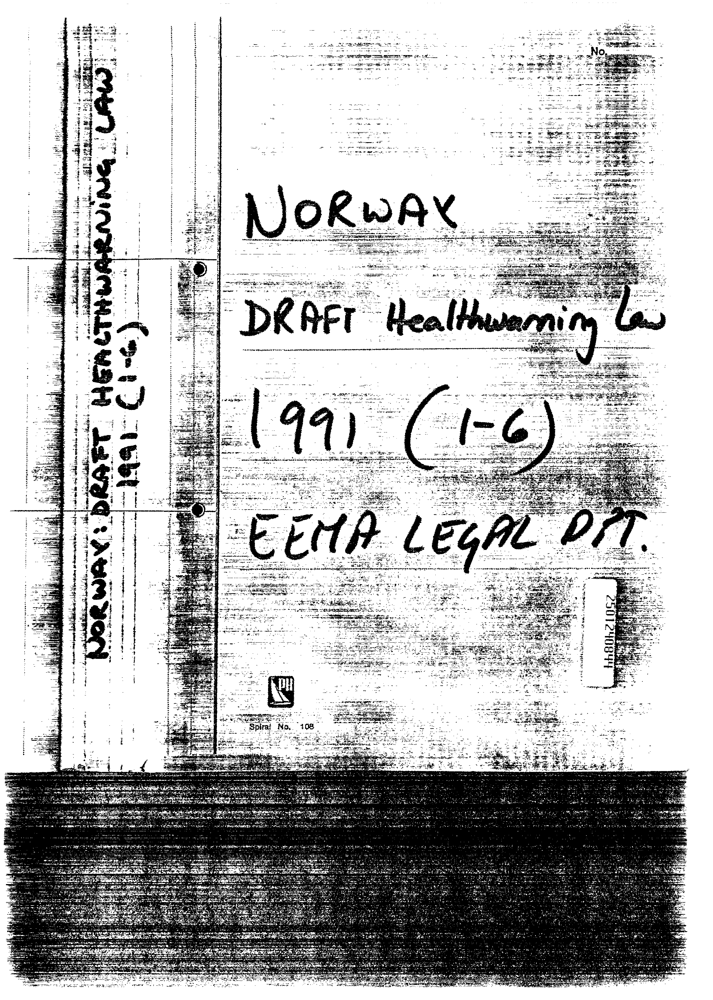 NORWAY: DRAFT HEALTHWARNING LAW
1991 (1-6)
No.
NORWAY
DRAFT Healthwarning Law
1991 (1-6)
EEMA LEGAL DPT.
2501240844
PH
Spiral No. 108